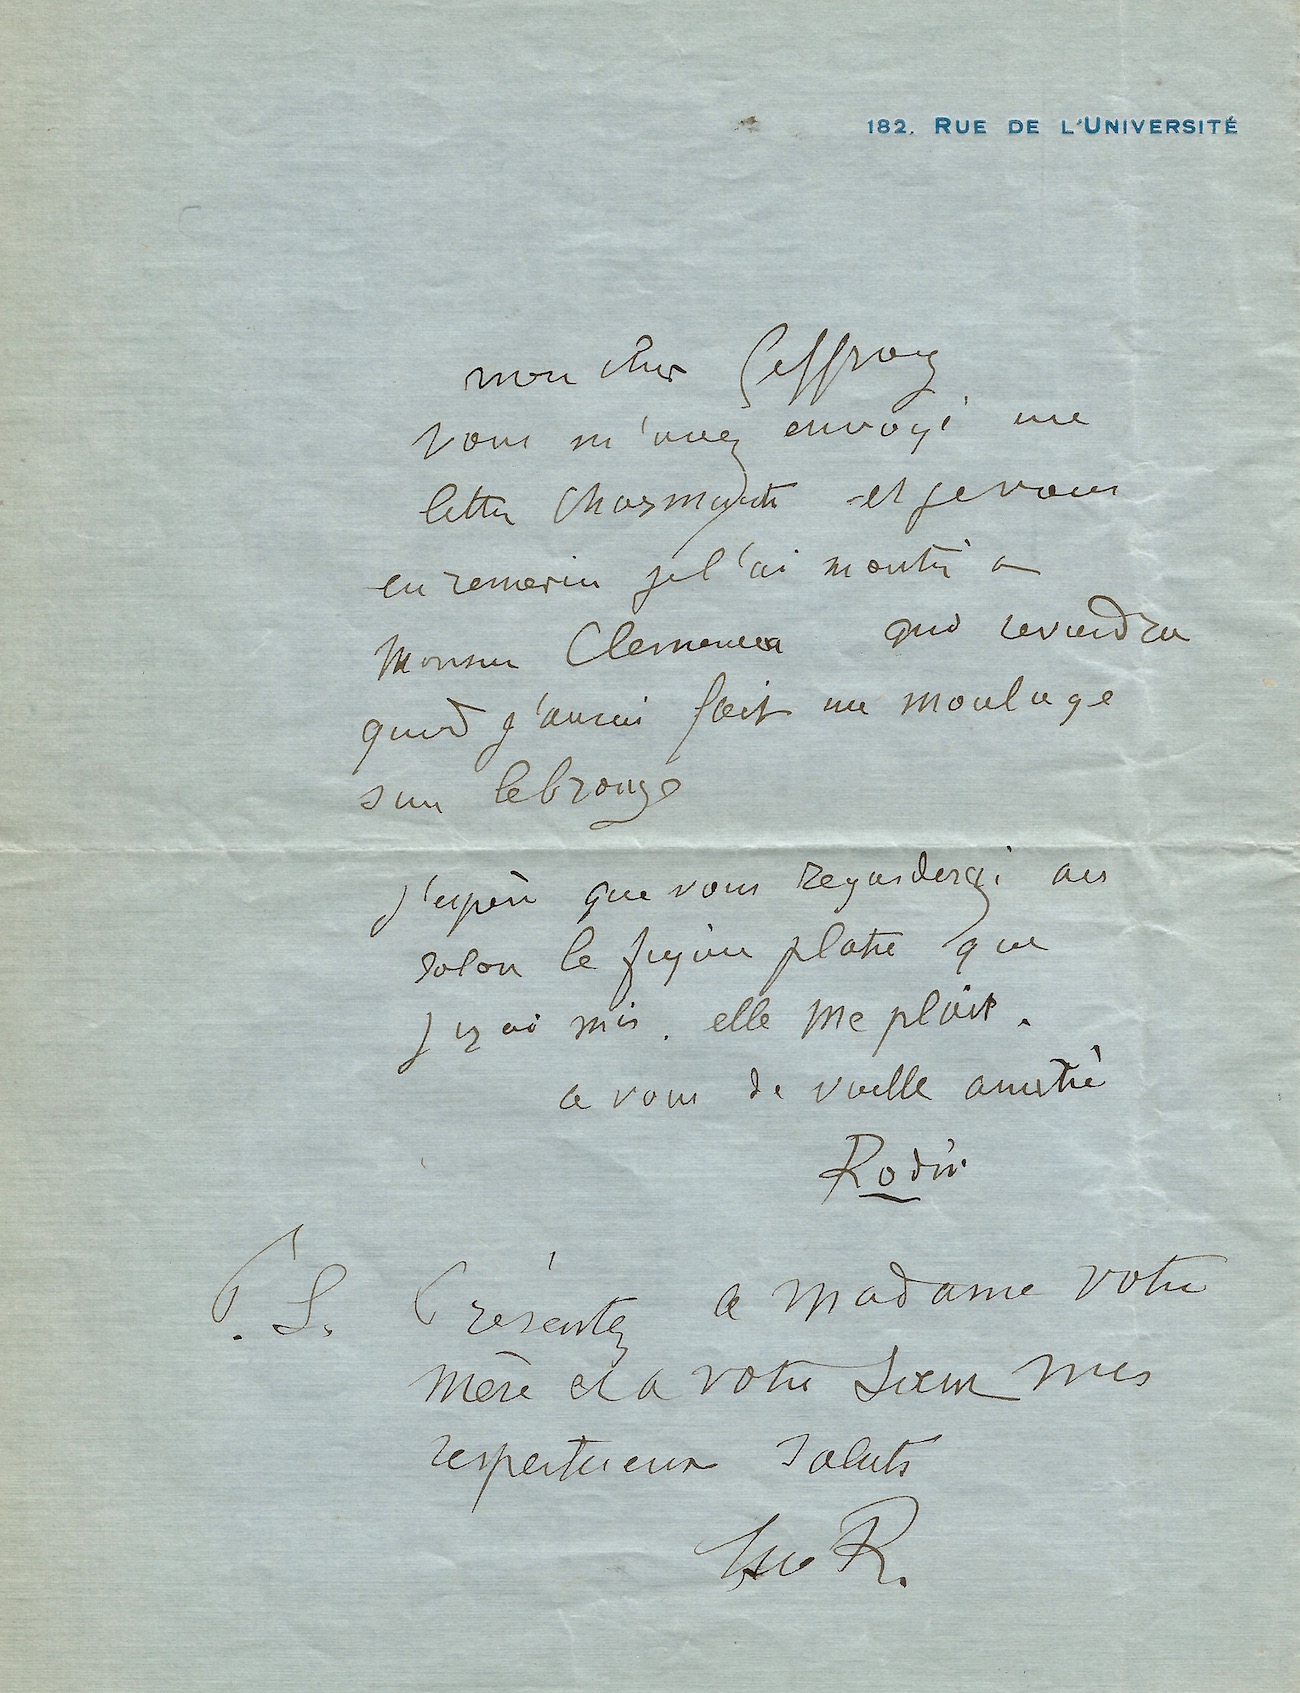 182. RUE DE L'UNIVERSITÉ
mon cher Geffroy
vous m'avez envoyé une
lettre charmante et je vous
en remercie je l'ai montré a
Monsieur Clemenceau qui reviendra
quand j'aurai fait un moulage
sur le bronze
j'espère que vous regarderez au
salon le figure platre que
j'y ai mis. elle me plait.
a vous de vieille amitié
Rodin
P.S. Présentez a madame votre
mère et a votre sœur mes
respectueux saluts
R.